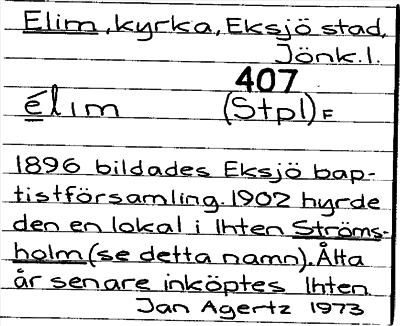 Elim, kyrka, Eksjö stad,
Jönk.l.
407
élim (Stpl) F
1896 bildades Eksjö bap-
tistförsamling. 1902 hyrde
den en lokal i lhten Ströms-
holm (se detta namn). Åtta
år senare inköptes lhten.
Jan Agertz 1973